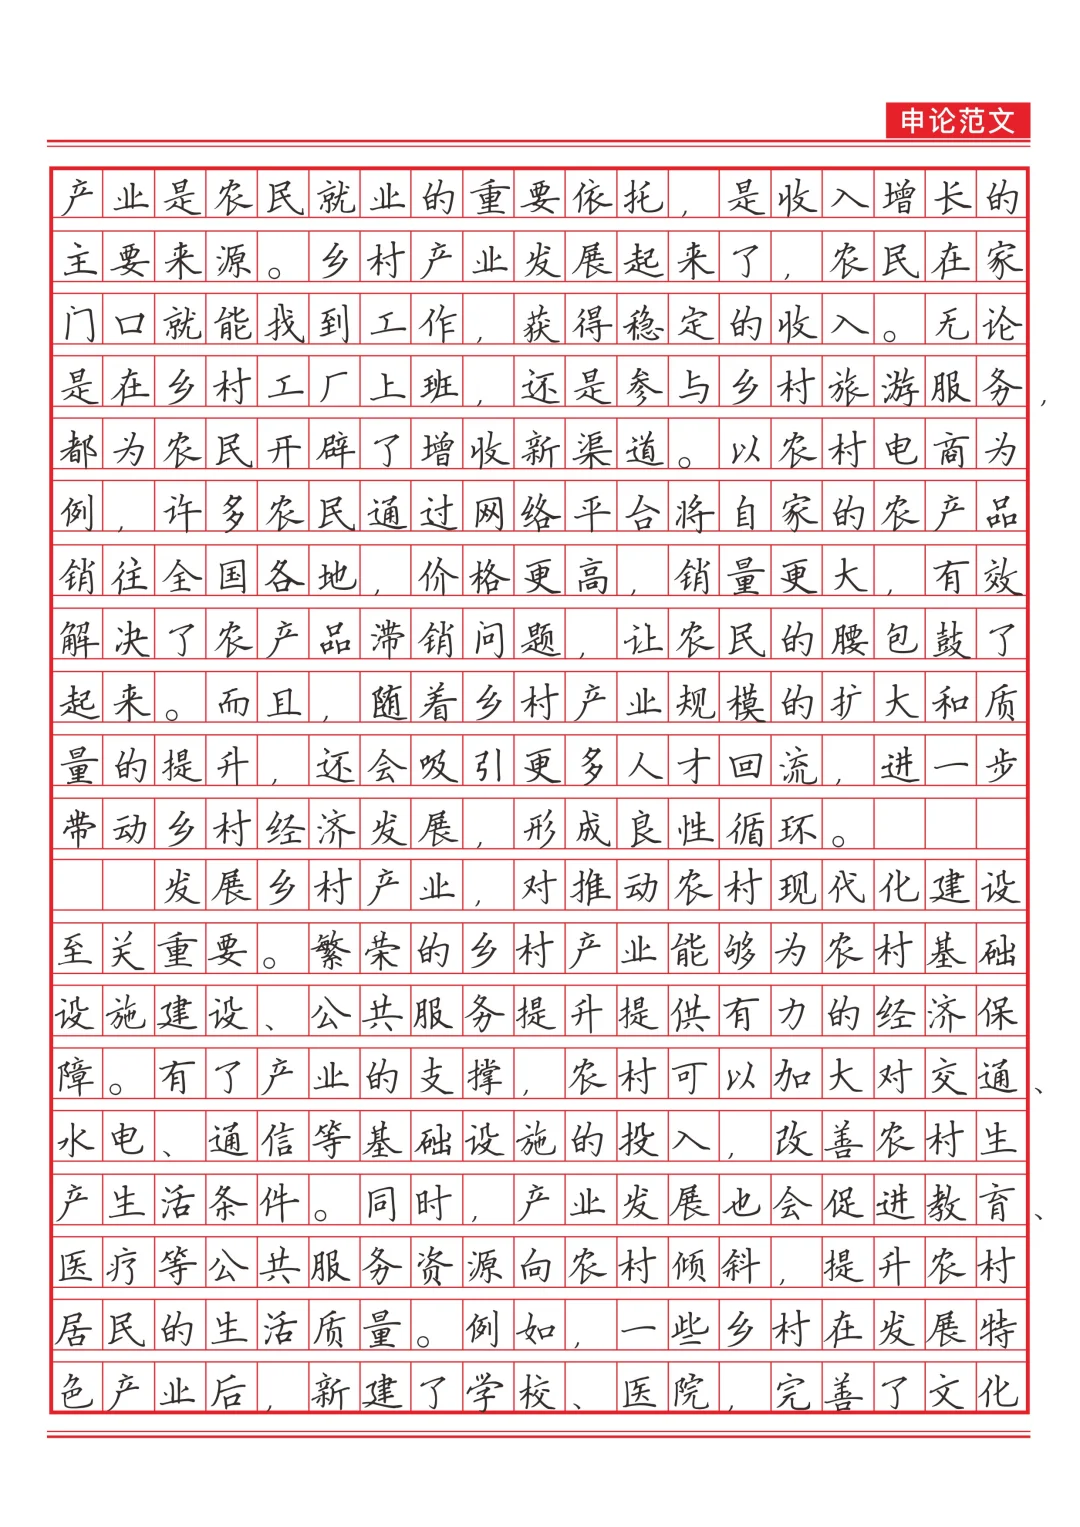 申论范文
产业是农民就业的重要依托，是收入增长的
主要来源。乡村产业发展起来了，农民在家
门口就能找到工作，获得稳定的收入。无论
是在乡村工厂上班，还是参与乡村旅游服务，
都为农民开辟了增收新渠道。以农村电商为
例，许多农民通过网络平台将自家的农产品
销往全国各地，价格更高，销量更大，有效
解决了农产品滞销问题，让农民的腰包鼓了
起来。而且，随着乡村产业规模的扩大和质
量的提升，还会吸引更多人才回流，进一步
带动乡村经济发展，形成良性循环。
发展乡村产业，对推动农村现代化建设
至关重要。繁荣的乡村产业能够为农村基础
设施建设、公共服务提升提供有力的经济保
障。有了产业的支撑，农村可以加大对交通、
水电、通信等基础设施的投入，改善农村生
产生活条件。同时，产业发展也会促进教育、
医疗等公共服务资源向农村倾斜，提升农村
居民的生活质量。例如，一些乡村在发展特
色产业后，新建了学校、医院，完善了文化